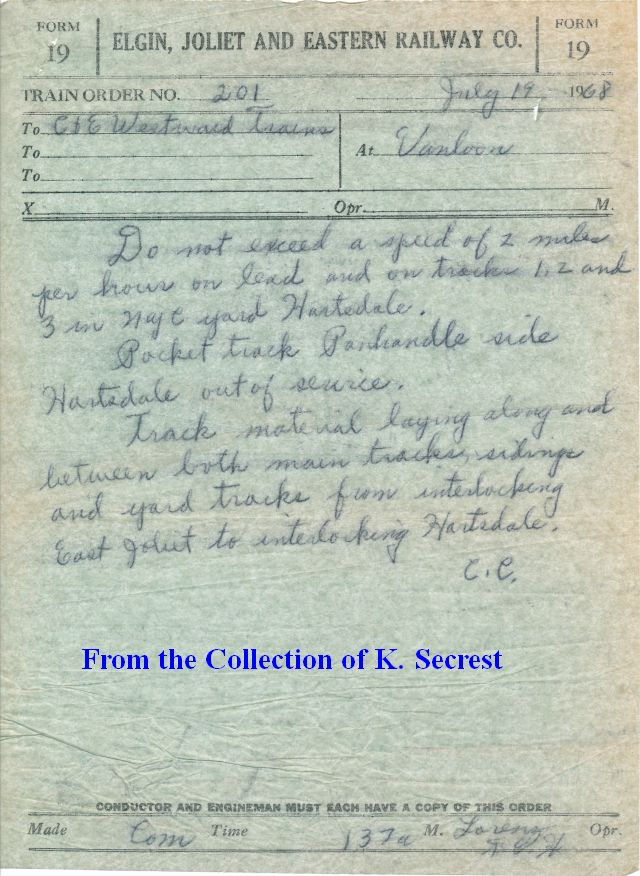 FORM 19
ELGIN, JOLIET AND EASTERN RAILWAY CO.
FORM 19
TRAIN ORDER NO. 201 July 19, 1968
To C&E Westward Trains
To
To
At Vanloon
X Opr. M.
Do not exceed a speed of 2 miles
per hour on lead and on tracks 1, 2 and
3 in NYC yard Hartsdale.
Pocket track Panhandle side
Hartsdale out of service.
Track material laying along and
between both main tracks, sidings
and yard tracks from interlocking
East Joliet to interlocking Hartsdale.
C.C.
From the Collection of K. Secrest
CONDUCTOR AND ENGINEMAN MUST EACH HAVE A COPY OF THIS ORDER
Made Com Time 137a M. Lorenz Opr.